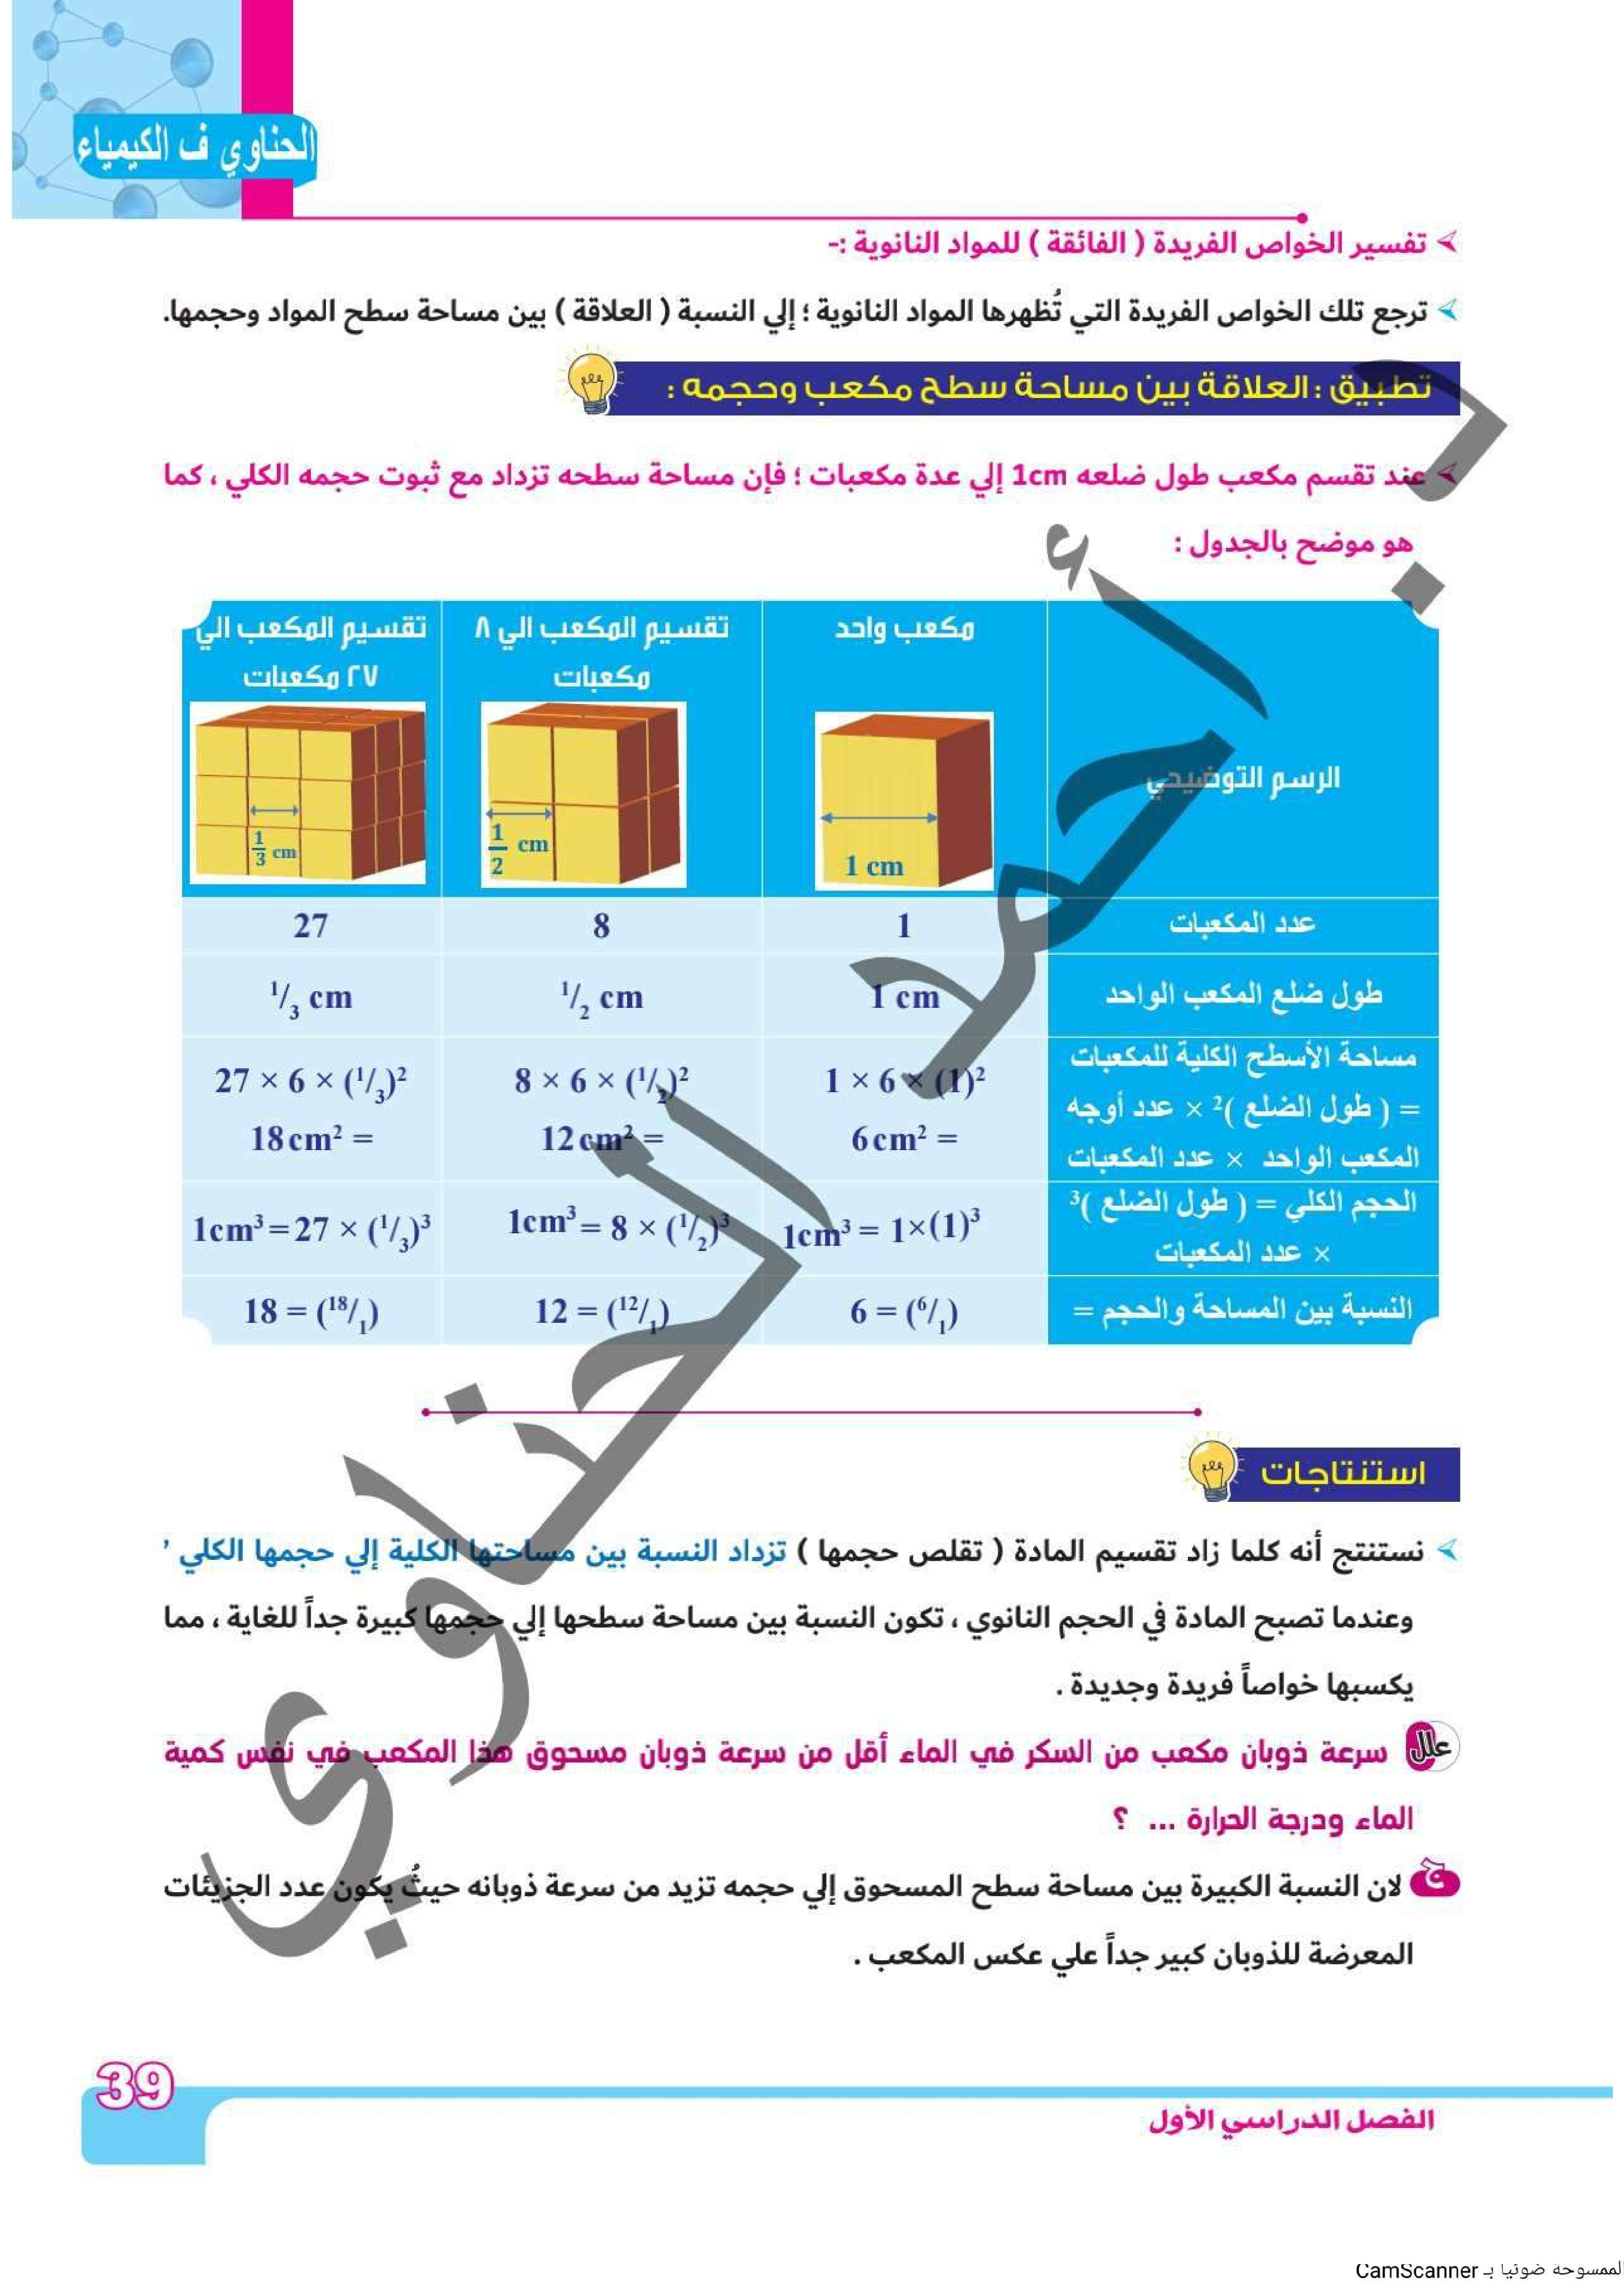 الحناوي ف الكيمياء
تفسير الخواص الفريدة ( الفائقة ) للمواد النانوية :-
ترجع تلك الخواص الفريدة التي تُظهرها المواد النانوية ؛ إلي النسبة ( العلاقة ) بين مساحة سطح المواد وحجمها.
تطبيق : العلاقة بين مساحة سطح مكعب وحجمه :
عند تقسم مكعب طول ضلعه 1cm إلي عدة مكعبات ؛ فإن مساحة سطحه تزداد مع ثبوت حجمه الكلي ، كما
هو موضح بالجدول :
الرسم التوضيحي
مكعب واحد
1 cm
تقسيم المكعب الي ٨
مكعبات
1/2 cm
تقسيم المكعب الي
٢٧ مكعبات
1/3 cm
عدد المكعبات 1 8 27
طول ضلع المكعب الواحد 1 cm ¹/₂ cm ¹/₃ cm
مساحة الأسطح الكلية للمكعبات
= ( طول الضلع )² × عدد أوجه
المكعب الواحد × عدد المكعبات
1 × 6 × (1)²
6cm² =
8 × 6 × (¹/₂)²
12cm² =
27 × 6 × (¹/₃)²
18cm² =
الحجم الكلي = ( طول الضلع )³
× عدد المكعبات
1cm³ = 1×(1)³
1cm³ = 8 × (¹/₂)³
1cm³ = 27 × (¹/₃)³
النسبة بين المساحة والحجم = 6 = (⁶/₁) 12 = (¹²/₁) 18 = (¹⁸/₁)
استنتاجات
نستنتج أنه كلما زاد تقسيم المادة ( تقلص حجمها ) تزداد النسبة بين مساحتها الكلية إلي حجمها الكلي ’
وعندما تصبح المادة في الحجم النانوي ، تكون النسبة بين مساحة سطحها إلي حجمها كبيرة جداً للغاية ، مما
يكسبها خواصاً فريدة وجديدة .
علل سرعة ذوبان مكعب من السكر في الماء أقل من سرعة ذوبان مسحوق هذا المكعب في نفس كمية
الماء ودرجة الحرارة ... ؟
ج لان النسبة الكبيرة بين مساحة سطح المسحوق إلي حجمه تزيد من سرعة ذوبانه حيثُ يكون عدد الجزيئات
المعرضة للذوبان كبير جداً علي عكس المكعب .
د. أحمد الحناوي
39
الفصل الدراسي الأول
لممسوحة ضوئيا بـ CamScanner